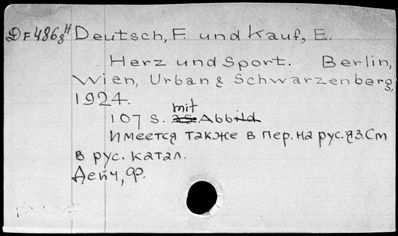 DF486gH Deutsch, F. und Kauf, E.
Herz und Sport. Berlin,
Wien, Urban & Schwarzenberg,
1924.
107 s. mit Abb
Имеется также в пер. на рус. яз См
в рус. катал.
Дейч, Ф.